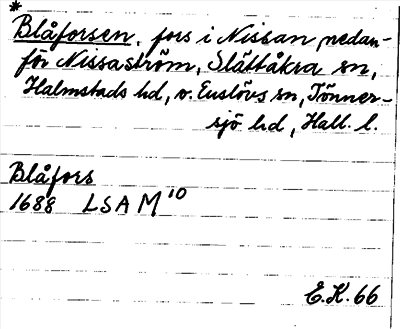 *
Blåforsen, fors i Nissan, nedan-
för Nissaström, Slättåkra sn,
Halmstads hd, o. Enslövs sn, Tönner-
sjö hd, Hall. l.
Blåfors
1688 LSA M¹⁰
E.K. 66